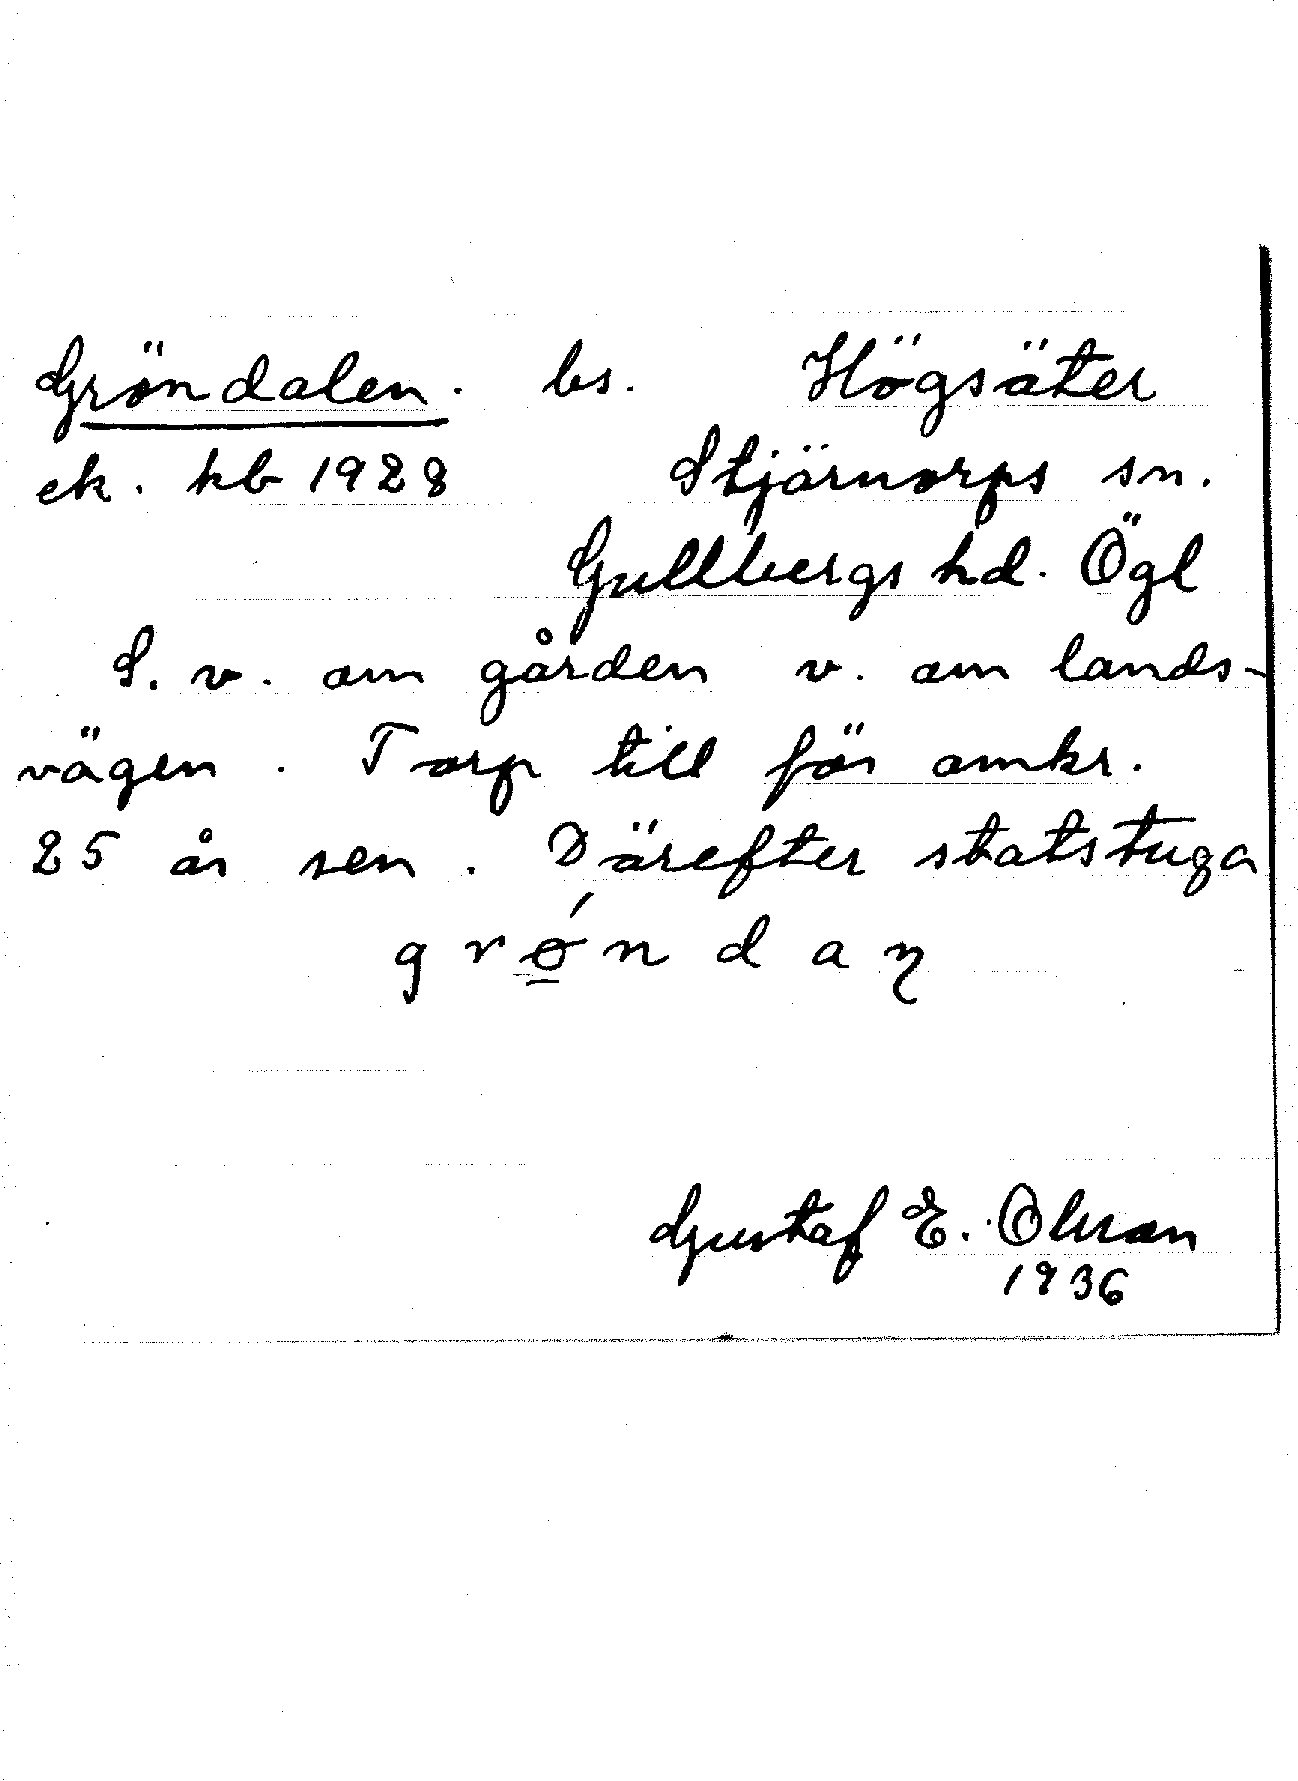 Gröndalen. bs. Högsäter
ek. kb 1928 Stjärnorps sn.
Gullbergs hd. Ögl
S. v. om gården v. om lands-
vägen. Torp till för omkr.
25 år sen. Därefter statstuga
grǿ̲ndaɳ
Gustaf E.
1936